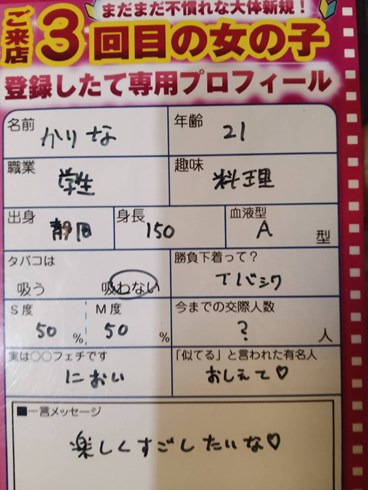 まだまだ不慣れな大体新規！
ご来店3回目の女の子
登録したて専用プロフィール
名前 かりな 年齢 21
職業 学生 趣味 料理
出身 静岡 身長 150 血液型 A 型
タバコは 勝負下着って？
吸う 吸わない Tバック
S度 M度 今までの交際人数
50 % 50 % ? 人
実は○○フェチです 「似てる」と言われた有名人
におい おしえて♡
■一言メッセージ
楽しくすごしたいな♡